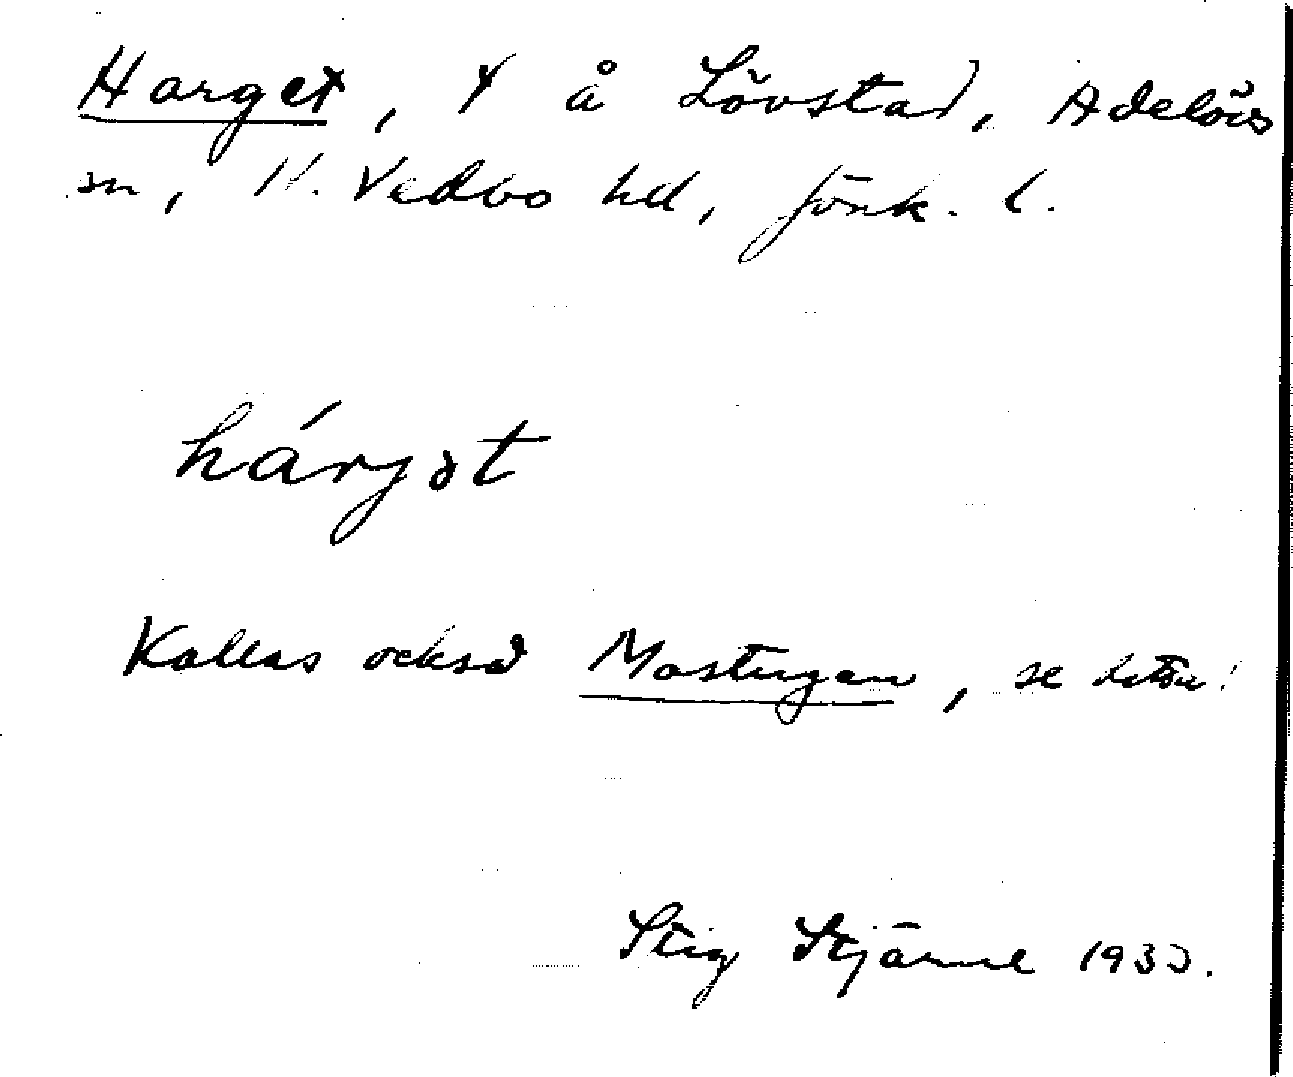 Harget, Y å Lövstad, Adelövs
sn, N. Vedbo hd, Jönk. l.
hárjət
Kallas också Mostugan, se detta!
Stig Stjärne 193